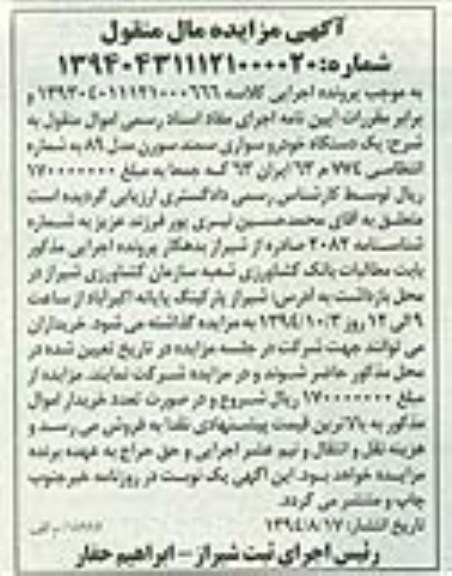 آگهی مزایده مال منقول
شماره: ۱۳۹۴۰۴۳۱۱۱۲۱۰۰۰۰۲۰
به موجب پرونده اجرایی کلاسه ۱۳۹۳۰۴۰۱۱۱۲۱۰۰۰۶۶۶ و
برابر مقررات آیین نامه اجرای مفاد اسناد رسمی اموال منقول به
شرح: یک دستگاه خودرو سواری سمند سورن مدل ۸۶ به شماره
انتظامی ۷۷۴ م ۶۳ ایران ۶۳ که جمعا به مبلغ ۱۷۰۰۰۰۰۰۰
ریال توسط کارشناس رسمی دادگستری ارزیابی گردیده است
متعلق به آقای محمدحسین نیری پور فرزند عزیز به شماره
شناسنامه ۲۰۸۲ صادره از شیراز بدهکار پرونده اجرایی مذکور
بابت مطالبات بانک کشاورزی شعبه سازمان کشاورزی شیراز در
محل بازداشت به آدرس: شیراز پارکینگ پایانه اکبرآباد از ساعت
۹ الی ۱۲ روز ۱۳۹۴/۱۰/۳ به مزایده گذاشته می شود. خریداران
می توانند جهت شرکت در جلسه مزایده در تاریخ تعیین شده در
محل مذکور حاضر شوند و در مزایده شرکت نمایند. مزایده از
مبلغ ۱۷۰۰۰۰۰۰۰ ریال شروع و در صورت تعدد خریدار اموال
مذکور به بالاترین قیمت پیشنهادی نقدا به فروش می رسد و
هزینه نقل و انتقال و نیم عشر اجرایی و حق حراج به عهده برنده
مزایده خواهد بود. این آگهی یک نوبت در روزنامه خبرجنوب
چاپ و منتشر می گردد.
تاریخ انتشار: ۱۳۹۴/۸/۱۷ م الف
رئیس اجرای ثبت شیراز - ابراهیم حفار